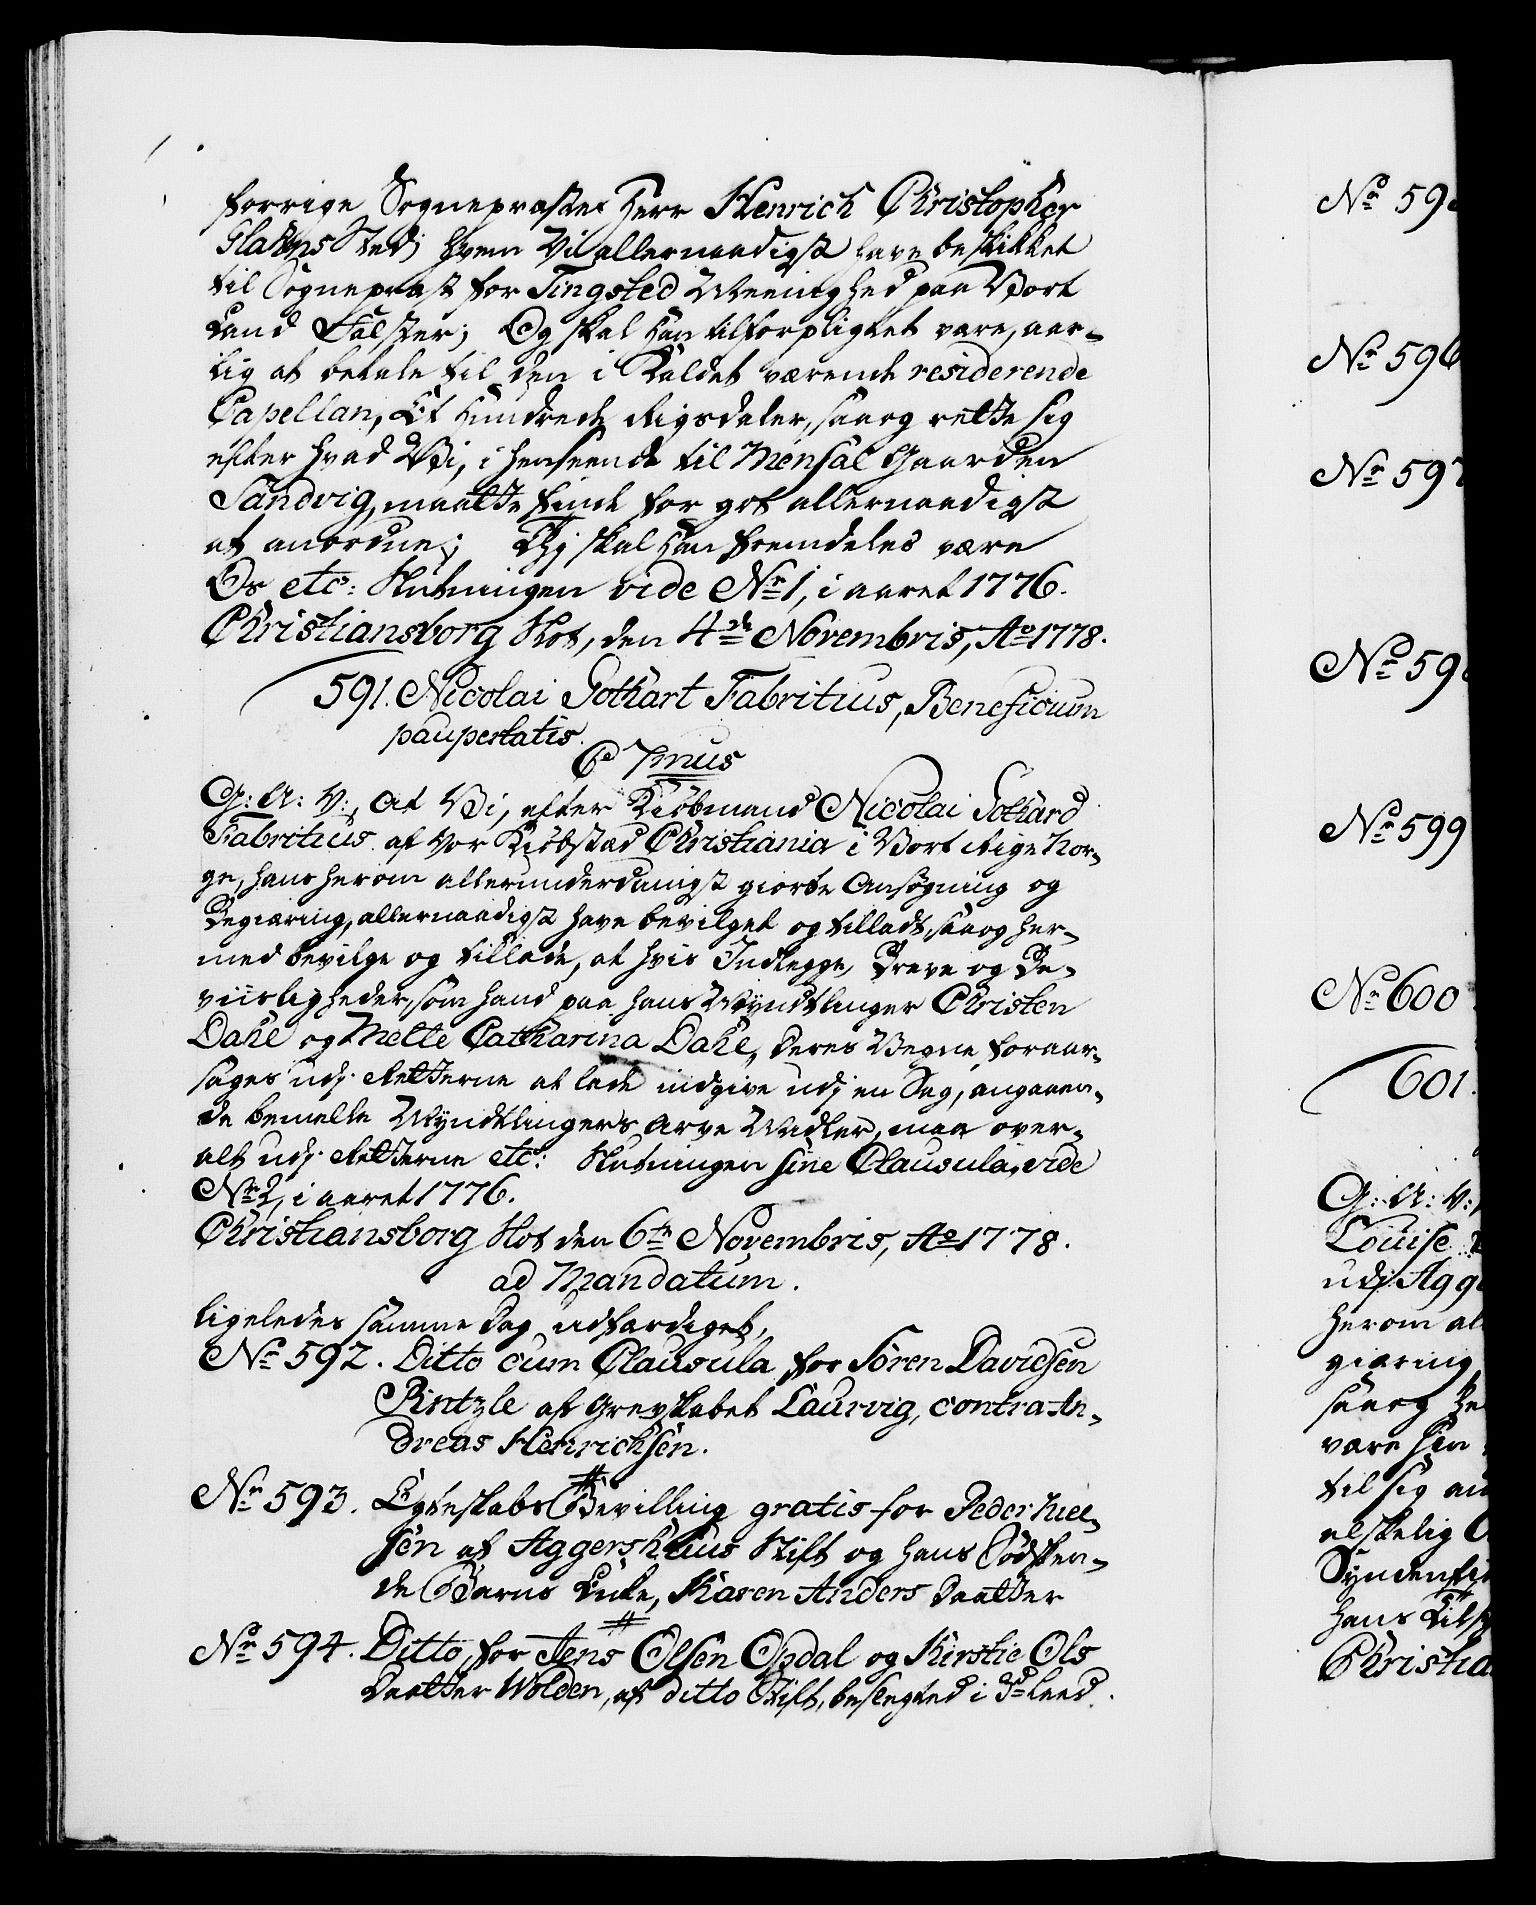 forrige Sognepræster Herr Henrich Christopher
Glahns Sted; hvem Vi allernaadigst have beskikket
til Sognepræst for Tingsted Meenighed paa Vort
Land Falster; Og skal han tilforpligtet være, aar-
lig at betale til den i Kaldet værende residerende
Capellan, Et Hundrede Rigsdaler, saa og rette sig
efter hvad Vi, i henseende til Mensal Gaarden
Sandvig, maatte finde for got allernaadigst
at anordne; Thj skal han fremdeles være
Os etc: Slutningen vide No 1, i aaret 1776.
Christiansborg Slot, den 4de Novembris, Ao 1778.
591. Nicolai Gothart Fabritius, Beneficium
paupertatis.
C 7mus
G: A: V:, At Vi, efter Kiöbmand Nicolai Gothard
Fabritius af Vor Kiöbstad Christiania i Vort Rige Nor-
ge, hans herom allerunderdanigst giorte Ansögning og
Begiæring, allernaadigst have bevilget og tilladt, saa og her-
med bevilge og tillade, at hvis Indlegge, Breve og Be-
viisligheder, som hand paa hans Myndtlinger Christen
Dahl og Mette Catharina Dahl, deres Vegne foraar-
sages udj Retterne at lade indgive udj en Sag, angaaen-
de bemelte Myndtlingers Arve Midler, maa over-
alt udj Retterne etc: Slutningen sine Clausula, vide
No 2, i aaret 1776.
Christiansborg Slot den 6te Novembris, Ao 1778.
ad Mandatum.
ligeledes samme Dag udfærdiget,
No 592. Ditto cum Clausula for Sören Davidsen
Pintzle af Grevskabet Laurvig, contra An-
dreas Henrichsen.
No 593. Egteskabs Bevilling gratis for Peder Niel-
sen af Aggershuus Stift og hans Södsken-
de Barns Enke, Karen Anders Daatter
No 594. Ditto, for Jens Olsen Opdal og Kirstie Ols
Daatter Wolden, af ditto Stift, beslegted i 3d Leed.
No 59
No 596
No 597
No 59
No 599
No 600
601.
G: A: V:,
Louise
udj Agg
herom al
giæring
saa og he
være sin
til sig an
elskelig
Syndenfi
hans Lils
Christia